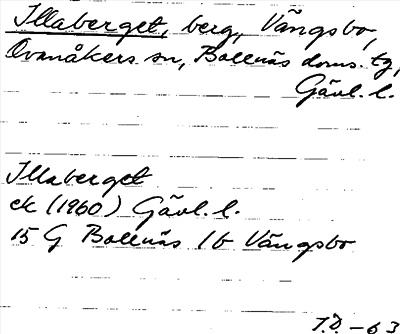 Illaberget, berg, Vängsbo,
Ovanåkers sn, Bollnäs doms. tg,
Gävl. l.
Illaberget
ek (1960) Gävl. l.
15 G Bollnäs 1b Vängsbo
T.D. -63